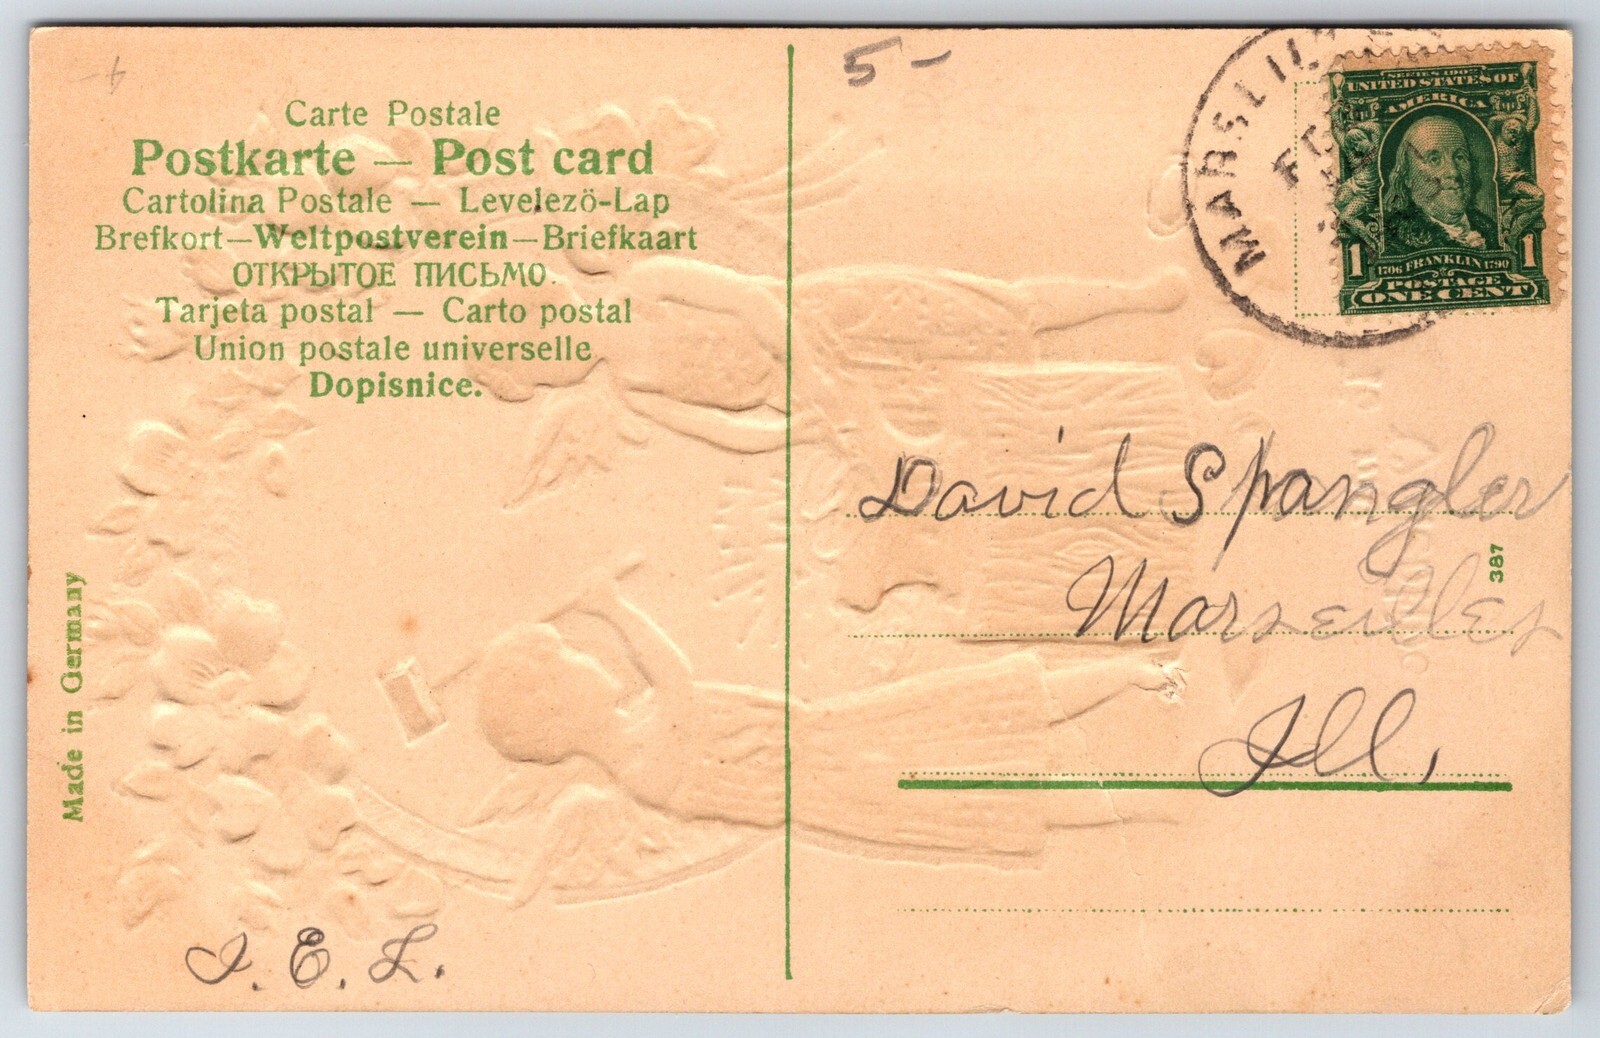 5-
Carte Postale
Postkarte — Post card
Cartolina Postale — Levelezö-Lap
Brefkort—Weltpostverein—Briefkaart
ОТКРЫТОЕ ПИСЬМО.
Tarjeta postal — Carto postal
Union postale universelle
Dopisnice.
Made in Germany
I. E. L.
SERIES 1902
UNITED STATES OF
AMERICA
1 1706 FRANKLIN 1790 1
POSTAGE
ONE CENT
David Spangler
Marseilles
Ill,
387